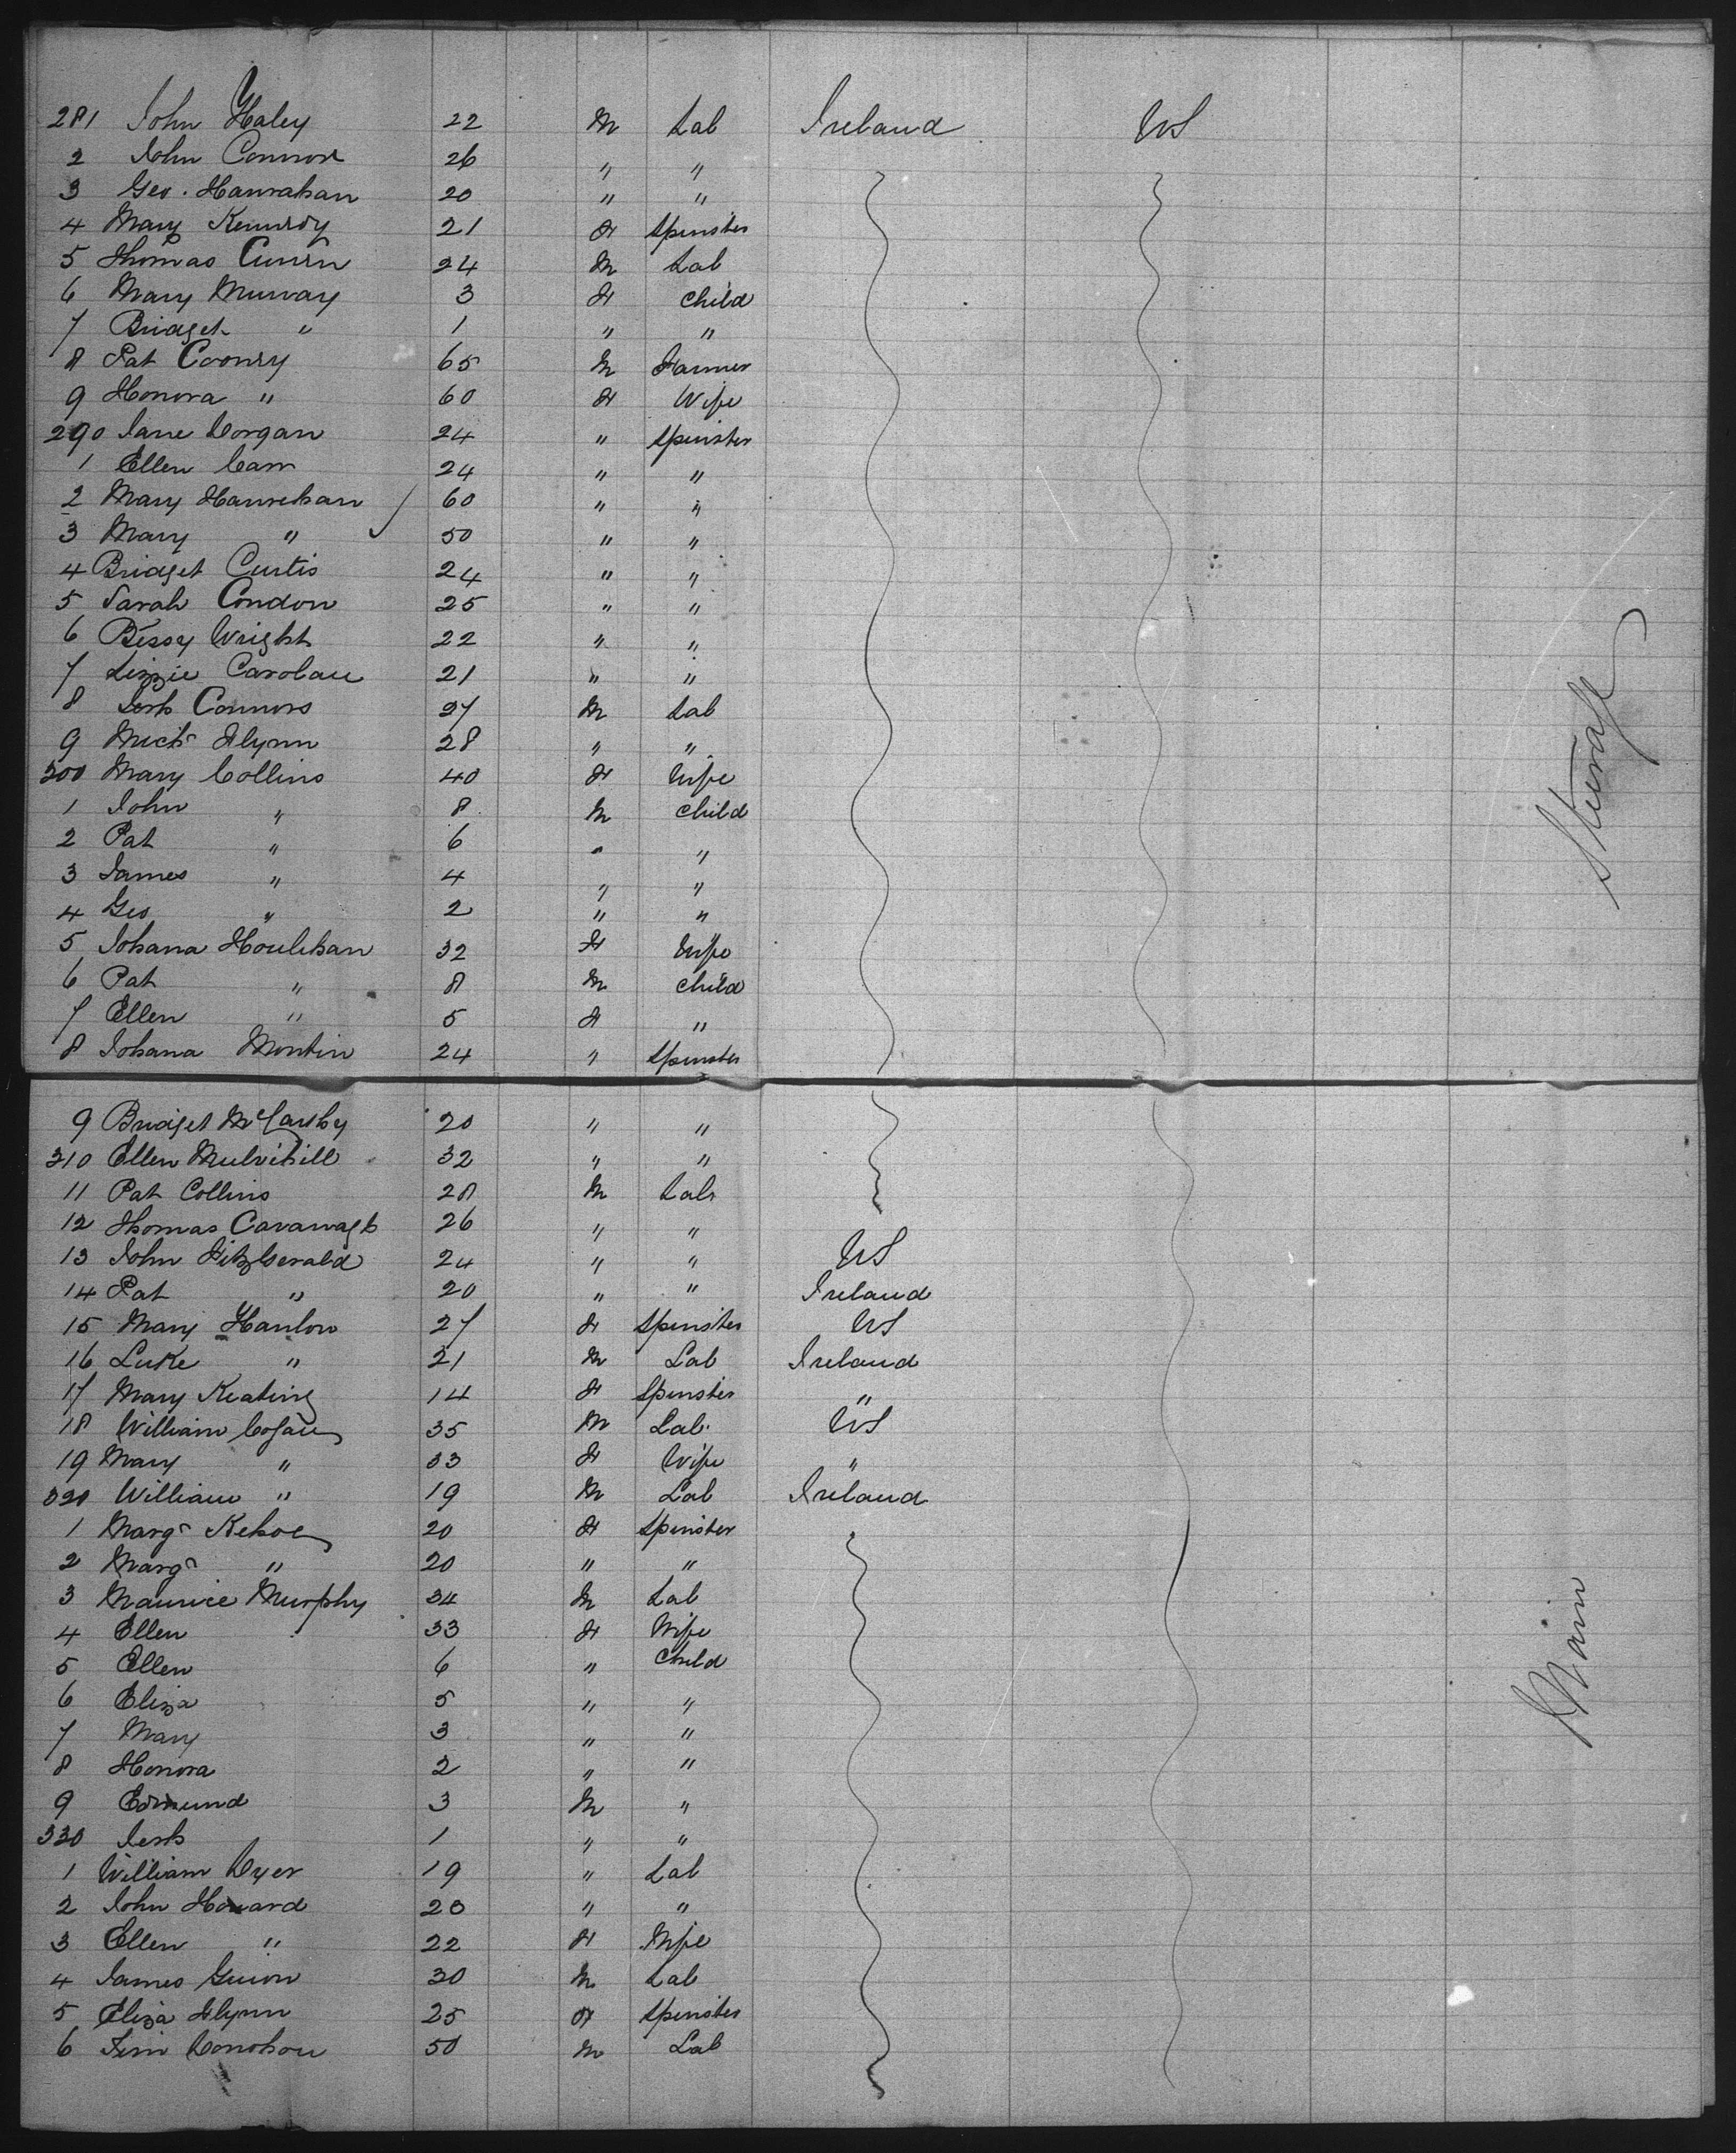 281 John Haley 22 M Lab Ireland US
2 John Connor 26 " "
3 Geo. Hanrahan 20 " "
4 Mary Kennedy 21 F Spinster
5 Thomas 24 M Lab
6 Mary Murray 3 F Child
7 Bridget " 1 " "
8 Pat Cooney 65 M Farmer
9 Honora " 60 F Wife
290 Jane Dorgan 24 " Spinster
1 Ellen 24 " "
2 Mary Hanrehan 60 " "
3 Mary " 50 " "
4 Bridget Curtis 24 " "
5 Sarah Condon 25 " "
6 Bessy Wright 22 " "
7 Lizzie Carolan 21 " "
8 Jerh Connors 27 M Lab
9 Michl Flynn 28 " "
300 Mary Collins 40 F Wife
1 John " 8 M Child
2 Pat " 6 " "
3 James " 4 " "
4 Geo " 2 " "
5 Johana Houlehan 32 F Wife
6 Pat " 8 M Child
7 Ellen " 5 F "
8 Johana 24 " Spinster
Steerage
9 Bridget McCarthy 20 " "
310 Ellen Mulvihill 32 " "
11 Pat Collins 28 M Lab
12 Thomas Cavanagh 26 " "
13 John FitzGerald 24 " " US
14 Pat " 20 " " Ireland
15 Mary Hanlon 27 F Spinster US
16 Luke " 21 M Lab Ireland
17 Mary Keating 14 F Spinster "
18 William Cogan 35 M Lab. US
19 Mary " 33 F Wife "
320 William " 19 M Lab Ireland
1 Margt Kehoe 20 F Spinster
2 Margt " 20 " "
3 Maurice Murphy 34 M Lab
4 Ellen 33 F Wife
5 Ellen 6 " Child
6 Eliza 5 " "
7 Mary 3 " "
8 Honora 2 " "
9 Edmund 3 M "
330 Jerh 1 " "
1 William Dyer 19 " Lab
2 John Howard 20 " "
3 Ellen " 22 F Wife
4 James 30 M Lab
5 Eliza Flynn 25 F Spinster
6 Tim Donohoe 50 M Lab
Main